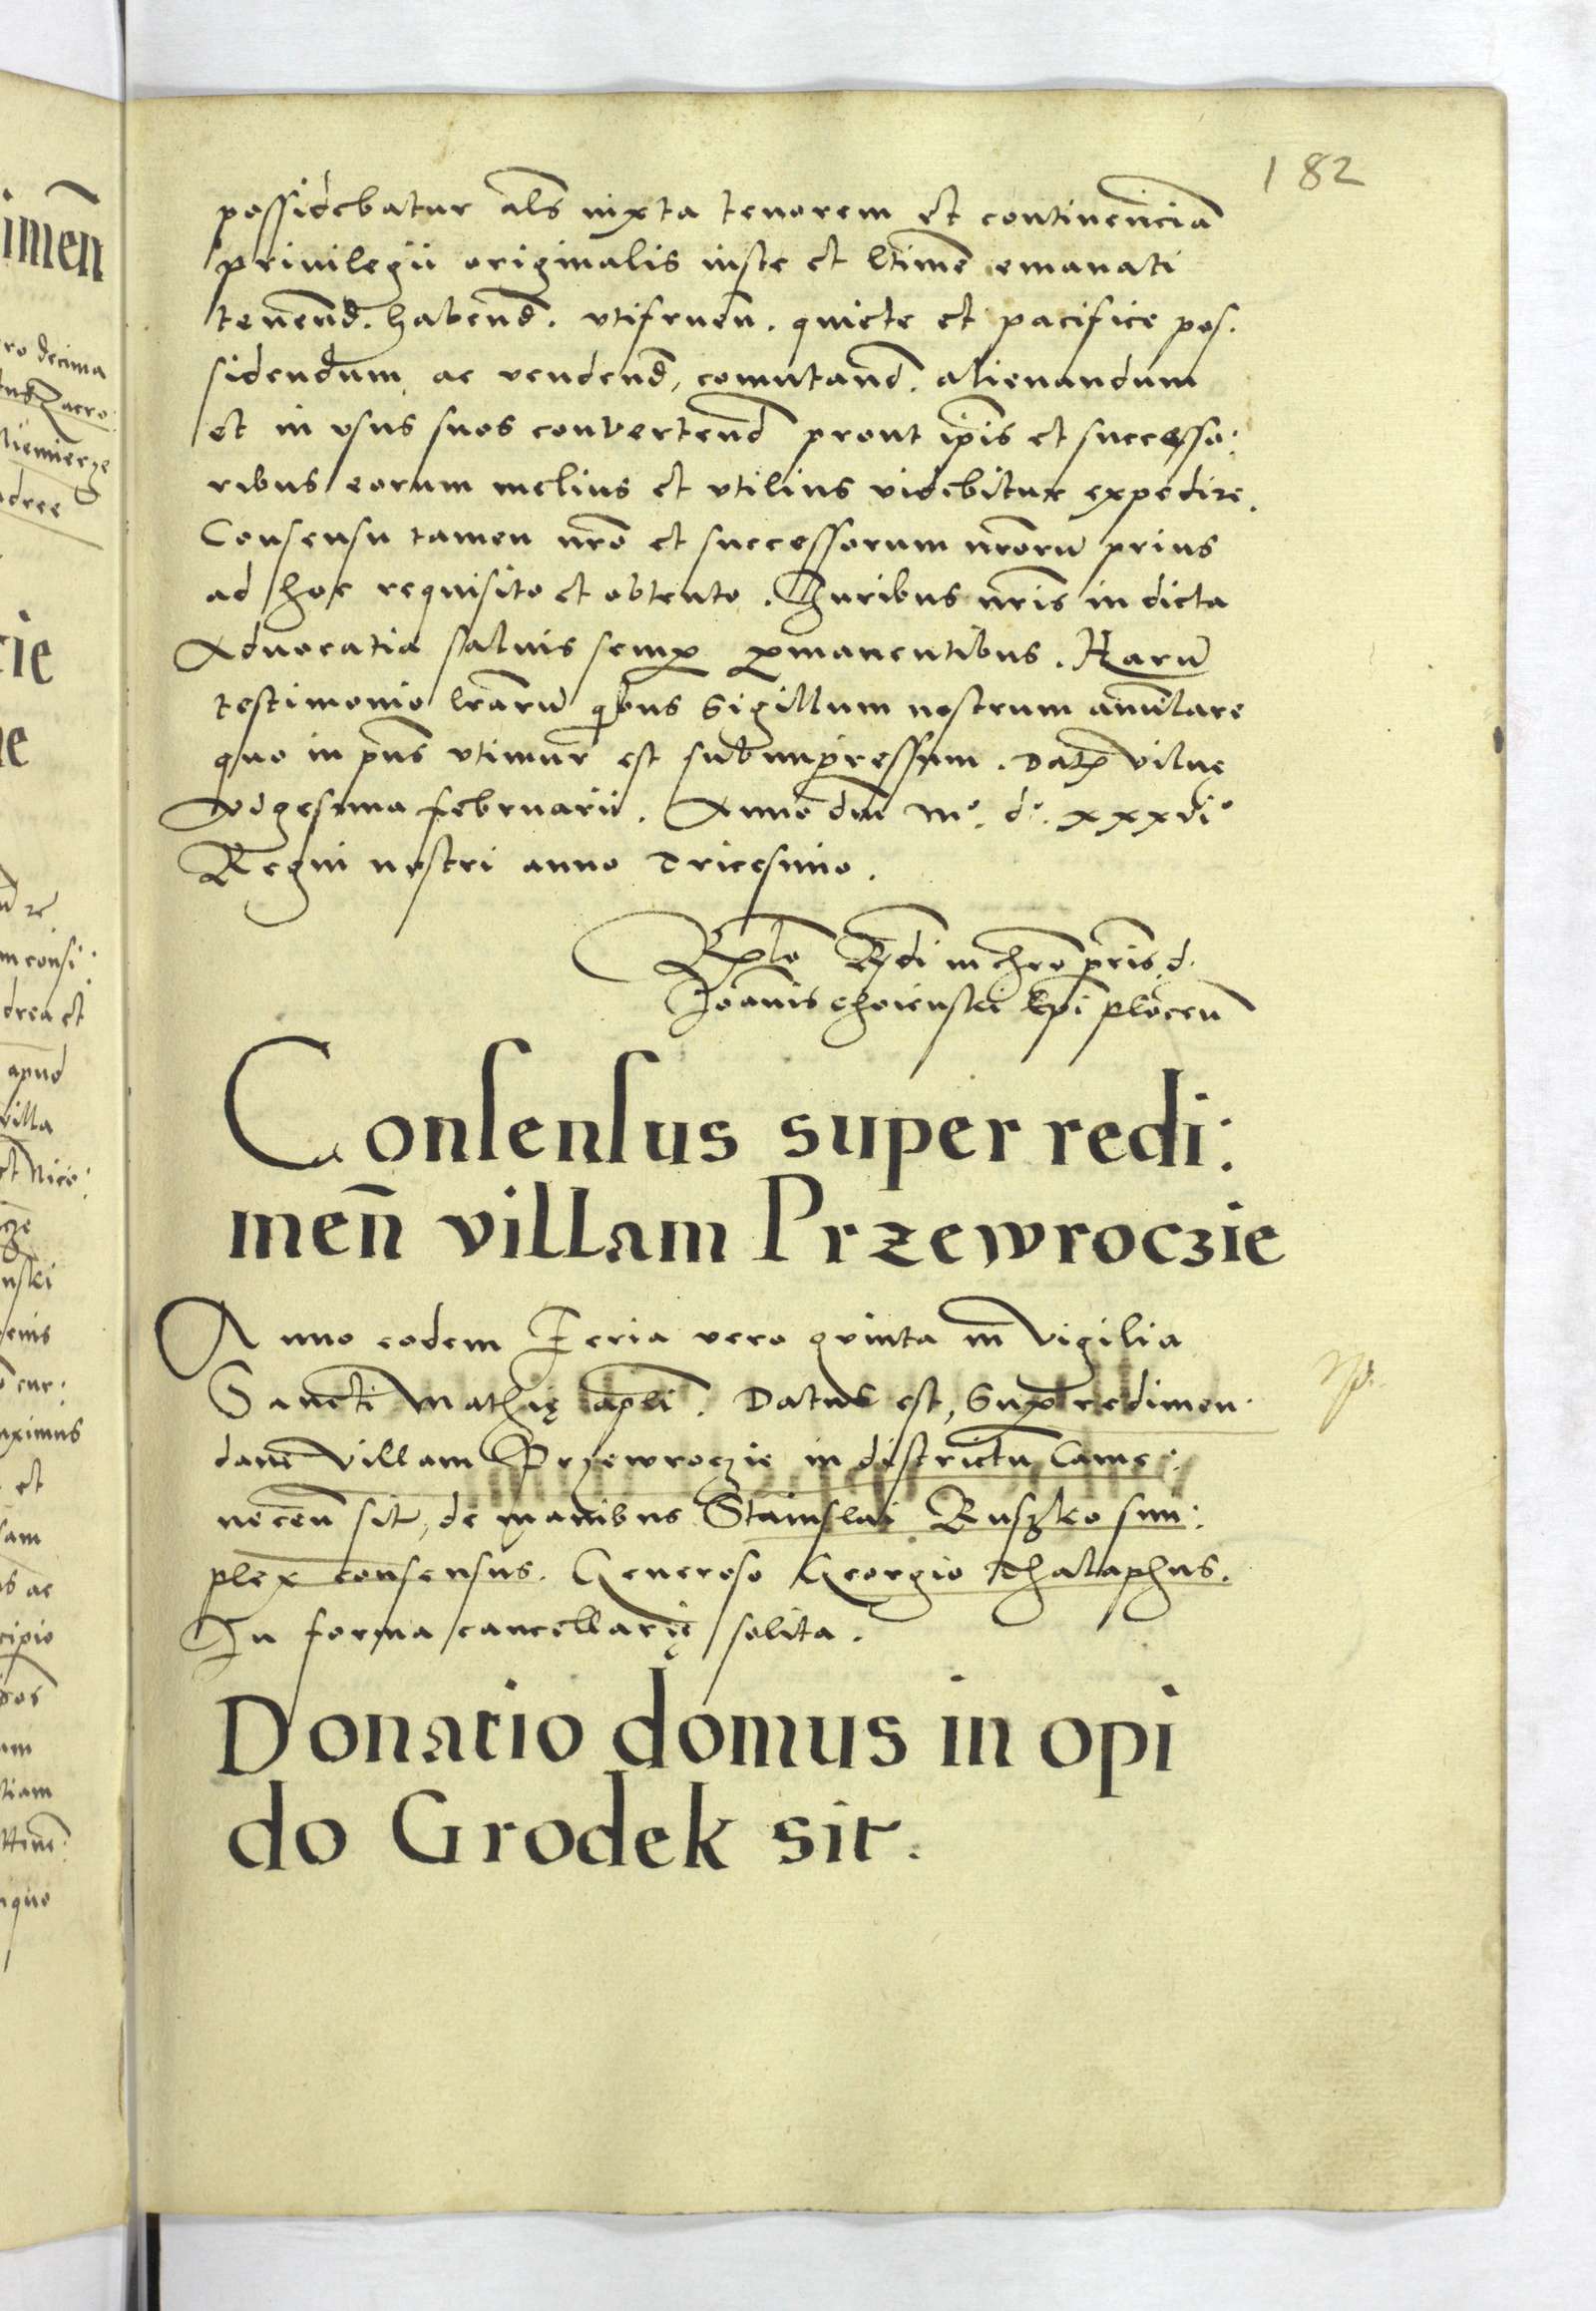 182
possidebatur als iuxta tenorem et continenciā
privilegii originalis iuste et ltime emanati
tenend. habend. utifruen. quiete et pacifice pos.
sidendum ac vendend, comutand. alienandum
et in usus suos convertend prout ipis et successo:
ribus eorum melius et utilius videbitur expedire.
Consensu tamen nro et successorum nrorū prius
ad hoc requisito et obtento. Iuribus nris in dicta
Advocatia salvis semp pmanentibus. Harū
testimonio lrarū quibus Sigillum nostrum anulare
quo in pns utimur est subimpressum. Datum Vilnę
Vigesima februarii. Anno dni mº. dº. xxxviº
Regni nostri anno Tricesimo.
Rlo Rndi in chro pris d.
Joannis choienski Epi plocen
Consensus super redi:
men̄ villam Przewroczie
Anno eodem Feria vero quinta in vigilia
Sancti Mathię apli. Datus est, Sup redimen.
dam villam Przewroczie in districtu Came:
necen sit, de manibus Stanislai Ruszko sim:
plex consensus. Generoso Georgio Thalaphus.
In forma cancellarię solita.
Donatio domus in opi
do Grodek sit.